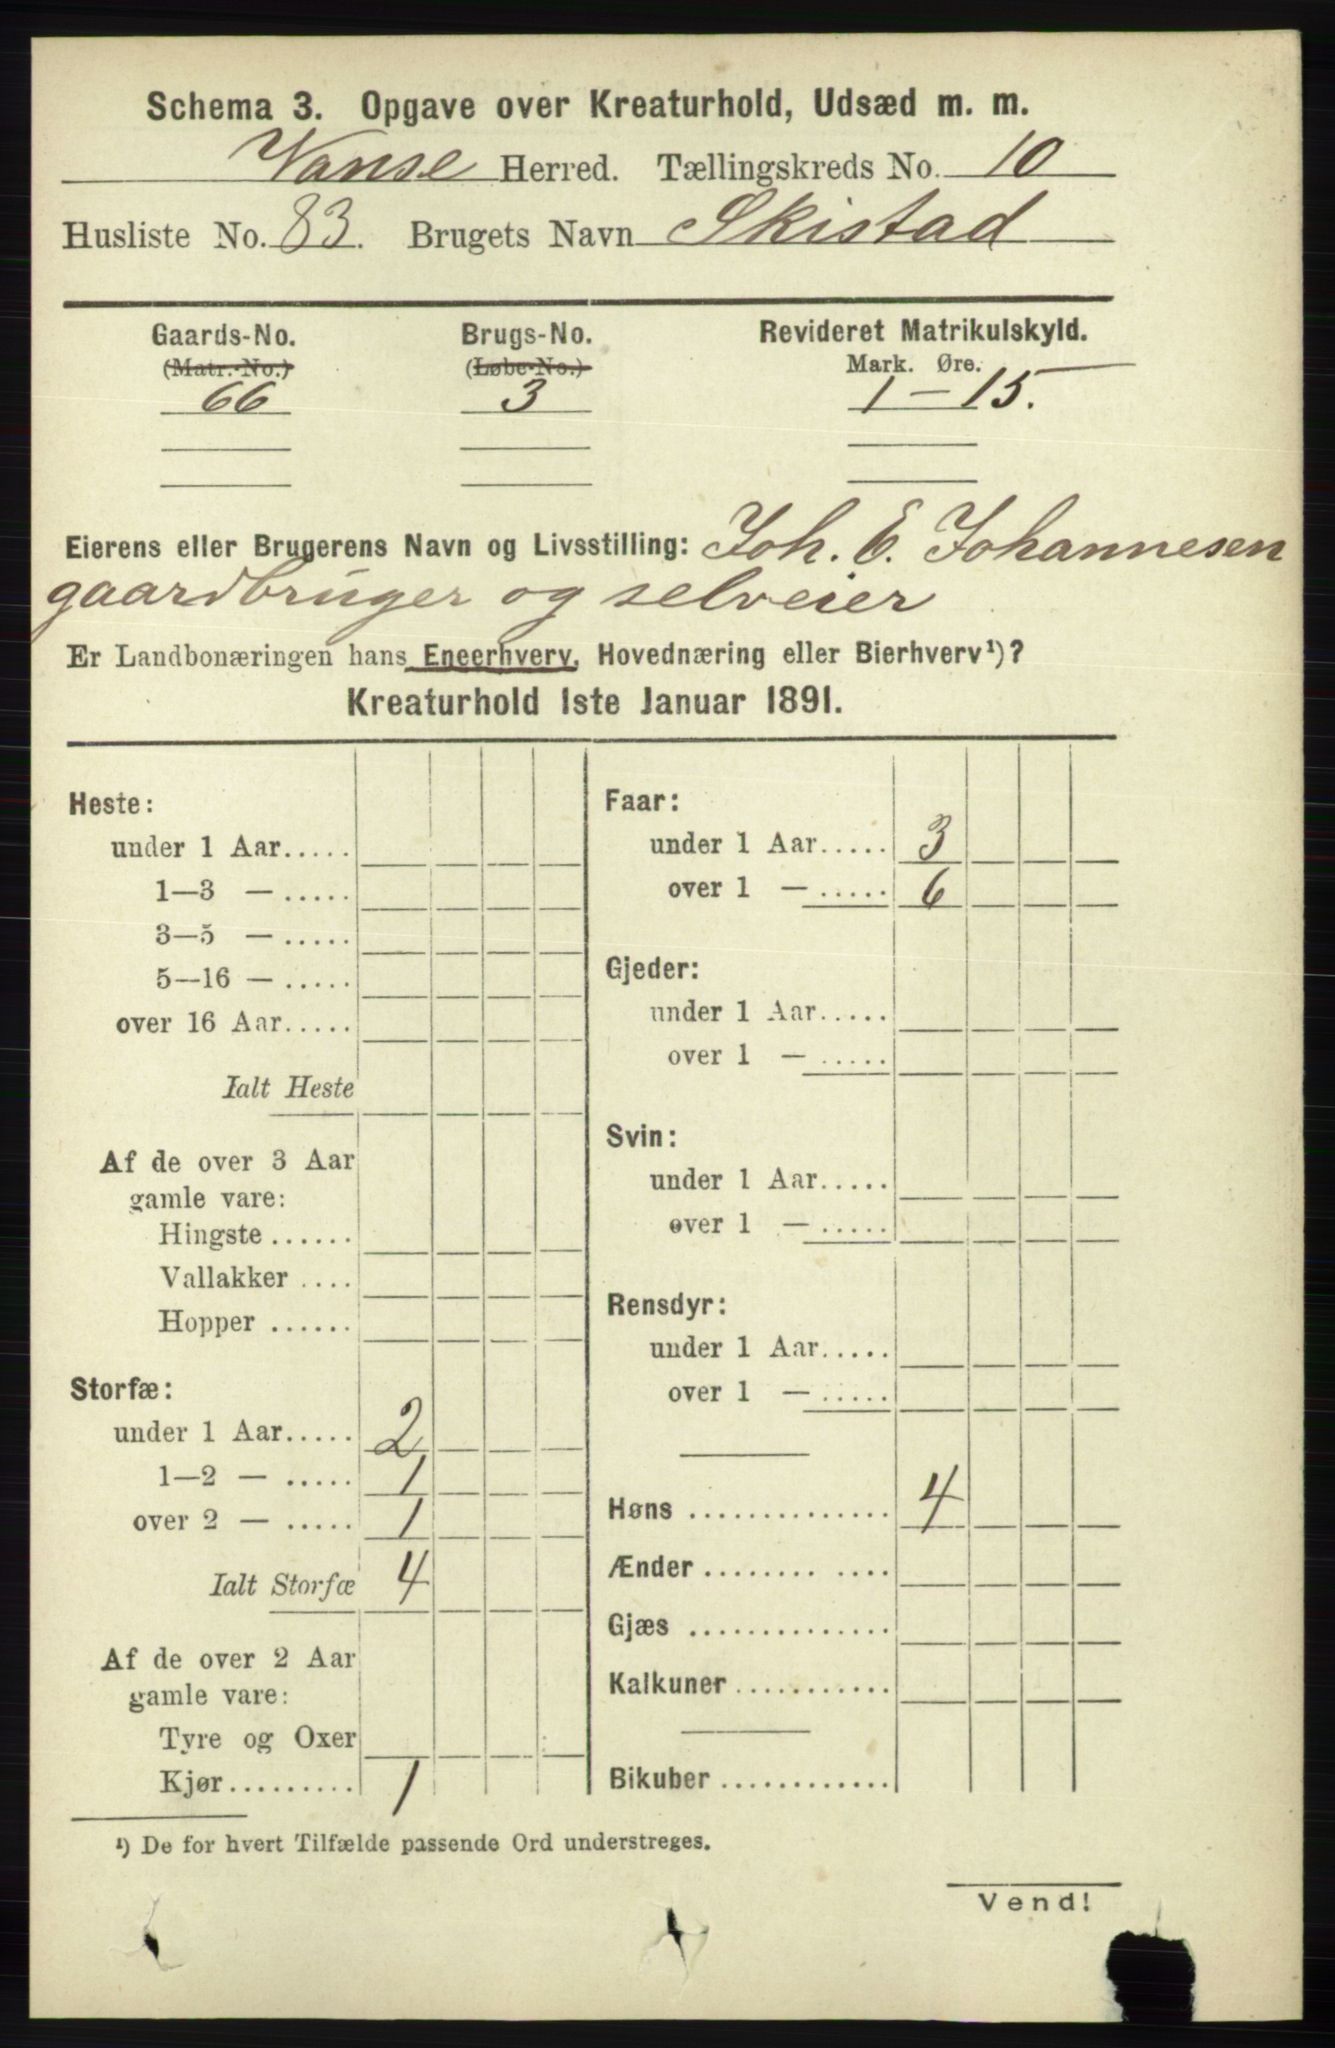 Schema 3. Opgave over Kreaturhold, Udsæd m. m.
Vanse Herred. Tællingskreds No. 10
Husliste No. 83. Brugets Navn Skistad
Gaards-No. Brugs-No. Revideret Matrikulskyld.
(Matr.-No.) (Løbe-No.) Mark. Øre.
66 3 1 – 15.
Eierens eller Brugerens Navn og Livsstilling: Joh. E. Johannesen
gaardbruger og selveier
Er Landbonæringen hans Eneerhverv, Hovednæring eller Bierhverv¹)?
Kreaturhold 1ste Januar 1891.
Heste:
under 1 Aar.....
1—3 — .....
3—5 — .....
5—16 — .....
over 16 Aar.....
Ialt Heste
Af de over 3 Aar
gamle vare:
Hingste ......
Vallakker ....
Hopper ......
Storfæ:
under 1 Aar..... 2
1—2 — ..... 1
over 2 — ..... 1
Ialt Storfæ 4
Af de over 2 Aar
gamle vare:
Tyre og Oxer
Kjør......... 1
Faar:
under 1 Aar..... 3
over 1 — ..... 6
Gjeder:
under 1 Aar.....
over 1 — .....
Svin:
under 1 Aar.....
over 1 — .....
Rensdyr:
under 1 Aar.....
over 1 — .....
Høns .............. 4
Ænder ........ ....
Gjæs ..............
Kalkuner...........
Bikuber ............
¹) De for hvert Tilfælde passende Ord understreges.
Vend!